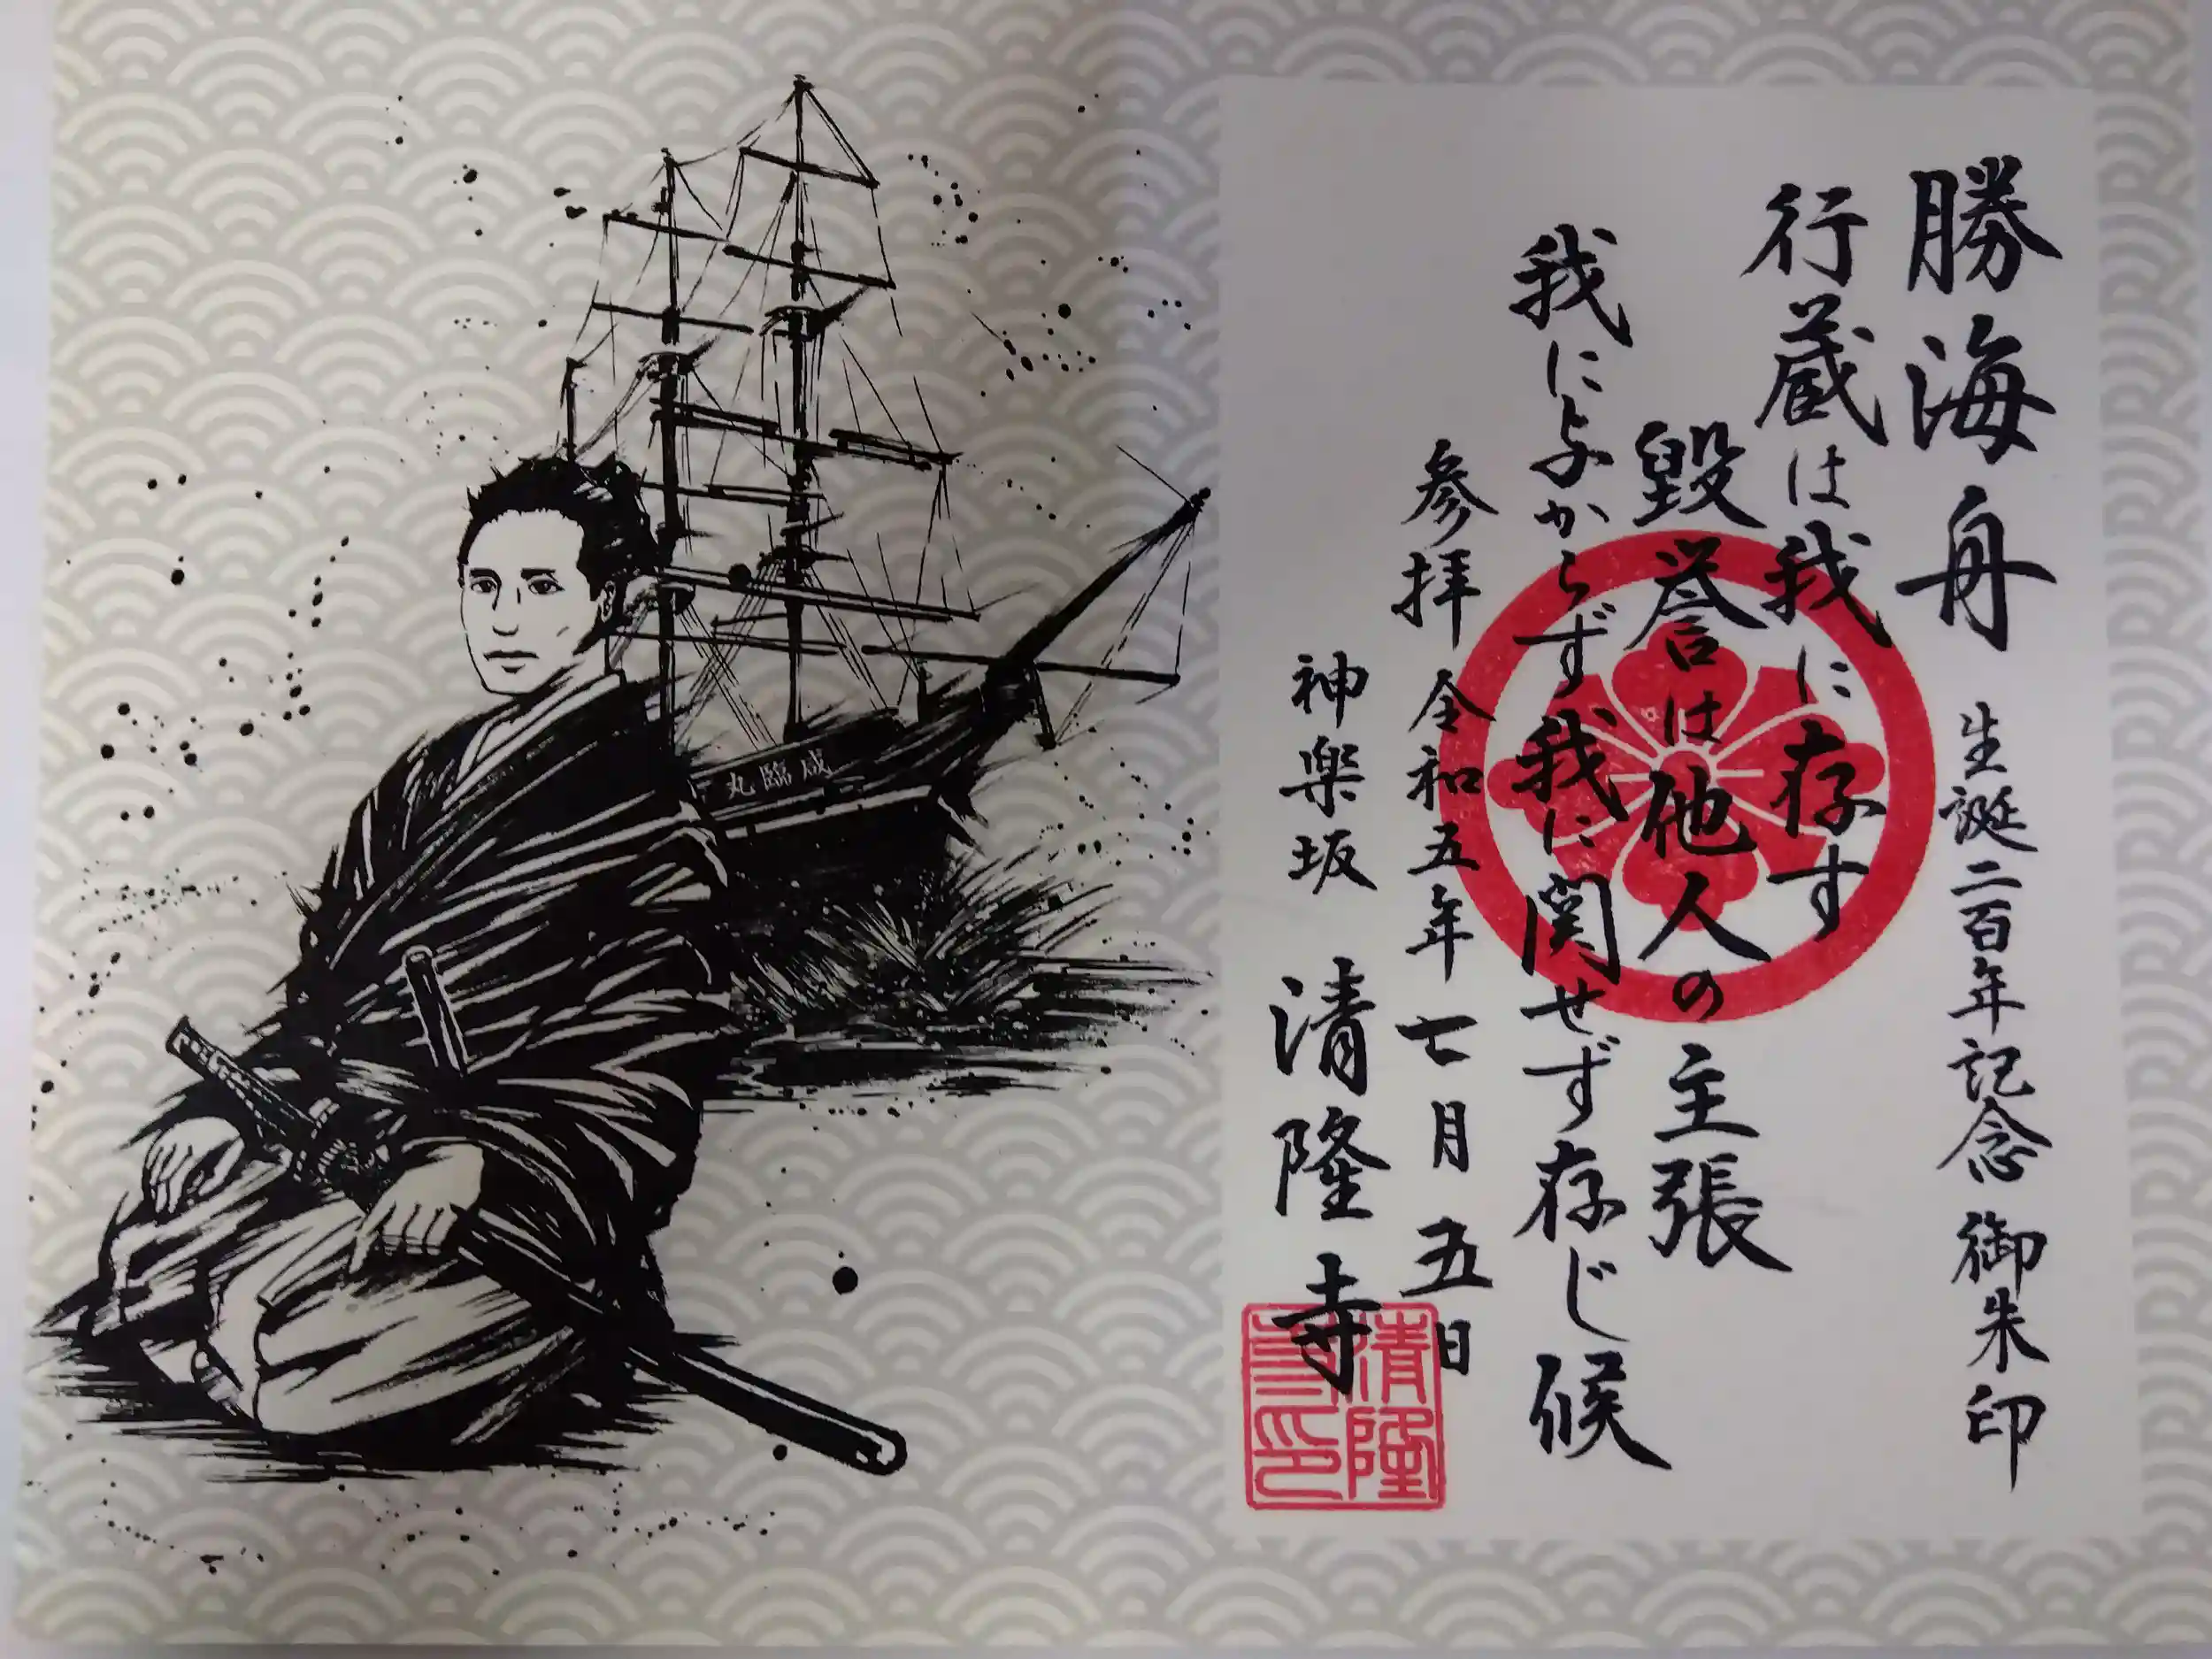 勝海舟 生誕二百年記念 御朱印
行蔵は我に存す
毀誉は他人の主張
我に与からず我に関せず存じ候
参拝 令和五年七月五日
神楽坂 清隆寺
清隆
寺印
咸臨丸